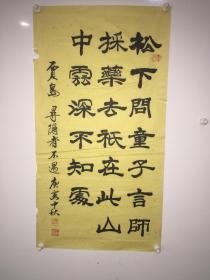 松下問童子言師
採藥去祇在此山
中雲深不知處
賈島 尋隱者不遇 庚寅中秋